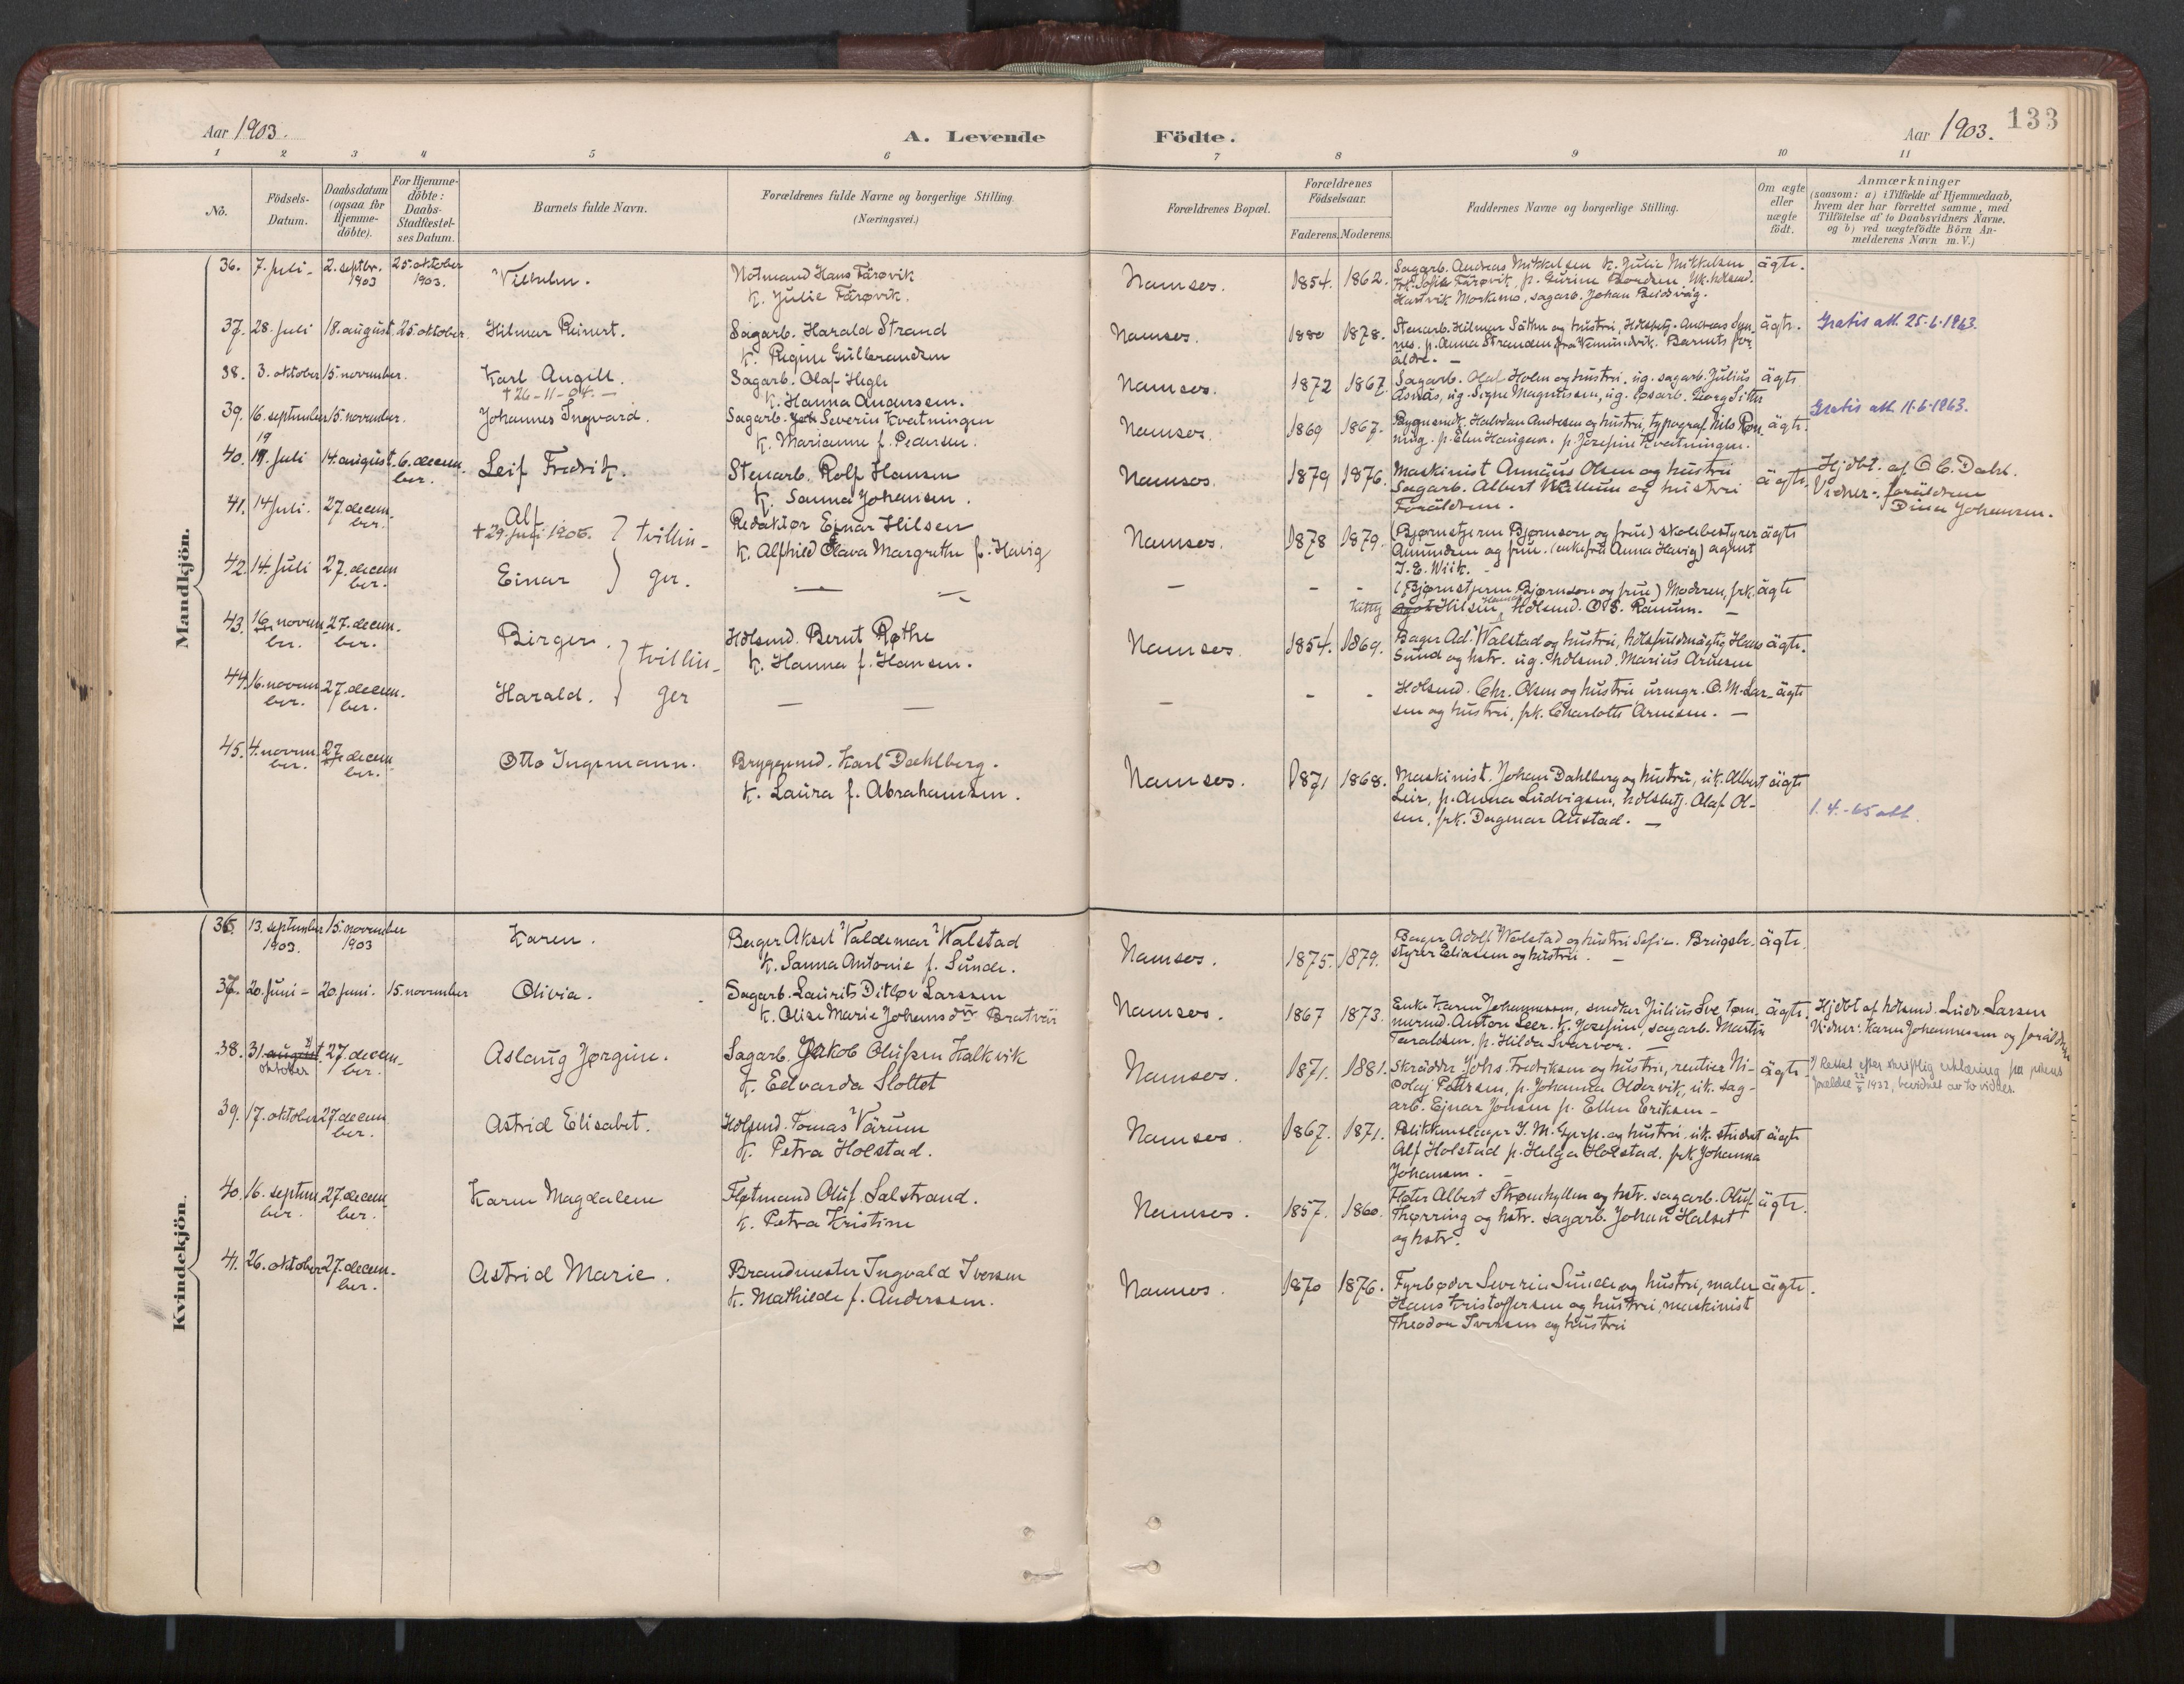 Aar 1903.
A. Levende Födte.
Aar 1903. 133
1 2 3 4 5 6 7 8 9 10 11
No.
Födsels-
Datum.
Daabsdatum
(ogsaa for
Hjemme-
döbte).
For Hjemme-
döbte:
Daabs-
Stadfæstel-
ses Datum.
Barnets fulde Navn.
Forældrenes fulde Navne og borgerlige Stilling.
(Næringsvei.)
Forældrenes Bopæl.
Forældrenes
Födselsaar.
Faderens. Moderens.
Faddernes Navne og borgerlige Stilling.
Om ægte
eller
uægte
födt.
Anmærkninger
(saasom: a) i Tilfælde af Hjemmedaab,
hvem der har forrettet samme, med
Tilföielse af to Daabsvidners Navne,
og b) ved uægtefödte Börn An-
melderens Navn m. V.)
Mandkjön.
36. 7. juli - 2. septbr. 1903 25. oktober 1903.
Vilhelm.
Notmand Hans Färøvik
K. Julie Färøvik.
Namsos. 1854. 1862.
Sagarb. Andreas Mikkelsen K. Julie Mikkelsen
Hartvik Morkemo, sagarb. Johan Beidsvåg.
ägte.
37. 28. juli 18. august. 25 oktober.
Hilmar Reinert.
Sagarb. Harald Strand
K. Regine Gulbrandsen
Namsos. 1880 1878.
Stenarb. Hilmar Säther og hustru, Hdlsbetj. Andreas
p. Anna Stranden fra Vemundvik. Barnets for
äldre. -
ägte.
Gratis att. 25-6-1963.
38. 3. oktober 15. november.
Karl Angill.
† 26-11-04. -
Sagarb. Olaf Hegle
K. Hanna Andersen.
Namsos. 1872 1867.
Sagarb. Olaf Holm og hustru, ug. sagarb. Julius
Asnäs, ug. Signe Magnussen, ug. løsarb. Georg
ägte
39. 16. september 15. november.
Johannes Ingvard.
Sagarb. Severin Kvatningen
K. Marianne f. Pedersen.
Namsos. 1869 1867.
Bygmesmk. Halvdan Andresen og hustru, typograf Nils Røn-
ning. p. Elen Haugan. p. Josefine Kvatningen.
ägte.
Gratis att. 11-6-1963.
40. 19. juli 14. august. 6. decem-
ber.
Leif Fredrik.
Stenarb. Rolf Hansen
K. Sanna Johansen.
Namsos. 1879 1876.
Maskinist Annäus Olsen og hustru
Sagarb. Albert og hustru
Forälderne.
ägte.
Hjdbt. af O. C. Dahl.
Vidner: forälderne
Dina Johansen.
41. 14 juli. 27. decem-
ber.
Alf
† 29. juni 1905. } tvillin-
Redaktør Ejnar Hilsen
K. Alfhild Olava Margrethe f. Havig
Namsos. 1878 1879.
(Bjørnstjerne Bjørnson og frue) skolebestyrer
Amundsen og frue. (enkefru Anna Havig) agent
J. E. Wiik. -
ägte
42. 14. juli 27. decem
ber.
Einar } ger.
— —
— - -
(Bjørnstjerne Bjørnson og frue) Moderen, frk.
Kitty Hilsen, Hdlsmd. O. S. Ranum. -
ägte
43. 16. novem-
ber. 27. decem-
ber.
Birger. } tvillin-
Hdlsmd. Bernt Røthe
K. Hanna f. Hansen.
Namsos 1854. 1869.
Bager Ad. Walstad og hustru, hdlsfuldmägtig Hans
Sund og hstr. ug. hdlsmd. Marius Arnesen
ägte.
44. 16. novem-
ber. 27. decem-
ber.
Harald. } ger
— —
— - -
Hdlsmd. Chr. Olsen og hustru urmgr. O. M. Lar-
sen og hustru, frk. Charlotte Arnesen. -
ägte
45. 4. novem-
ber. 27 decem
ber.
Otto Ingemann.
Bryggemd. Karl Dahlberg.
K. Laura f. Abrahamsen.
Namsos. 1871 1868.
Maskinist. Johan Dahlberg og hustru, uk. Albert
Leir, p. Anna Ludvigsen, hdlsbetj. Olaf Ol-
sen, frk. Dagmar Austad. -
ägte
1.4.-65 att.
Kvindekjön.
36. 13. september 1903. 15. november 1903
Karen.
Bager Aksel Valdemar Walstad
K. Sanna Antonie f. Sunde.
Namsos. 1875. 1879.
Bager Adolf Walstad og hustru Sofie. Brugsbe-
styrer Eliasen og hustru. -
ägte.
37. 20. juni - 20. juni. 15. november
Olivia.
Sagarb. Laurits Ditløv Larssen
K. Olise Marie Johensdtr Bratveii
Namsos. 1867 1873.
Enke Karen Johannessen, smedkar Julius Sve, tøm-
mermd. Anton Leer. K. Josefine, sagarb. Martin
Taraldsen, p. Hilda Svarvar. -
ägte.
Hjdbt af hdlsmd. Ludv. Larsen
Vidner: Karen Johannessen og forälderne
38. 31. august oktober 27. decem-
ber.
Aslaug Jørgine.
Sagarb. Jakob Olufsen Kalkvik
K. Edvarda Slottet
Namsos. 1871. 1881.
Skrädder Johs. Fredriksen og hustru, rentier Ni-
colaj Pettersen, p. Johanna Oldervik, uk. sag-
arb. Ejnar Jonsen p. Ellen Eriksen -
ägte
Rettet efter skriftlig erklæring fra pikens
forældre 22/8 1932, bevidnet av to vidner.
39. 17. oktober 27. decem
ber.
Astrid Elisabet.
Hdlsmd. Tomas Värum
K. Petra Holstad.
Namsos. 1867. 1871.
Blikkenslager J. M. og hustru. uk. student
Alf Holstad p. Helga Holstad. frk Johanna
Johansen. -
ägte
40. 16. septem-
ber. 27. decem-
ber.
Karen Magdalene
Fløtmand Oluf Salstrand.
K. Petra Kristine
Namsos. 1857. 1860.
Fløter Albert Strømhyllen og hstr. sagarb. Oluf
Thørring og hstr. sagarb. Johan Halset
og hstr.
ägte.
41. 26. oktober 27. decem-
ber.
Astrid Marie.
Brandmester Ingvald Iversen
K. Mathilde f. Anderssen.
Namsos. 1870 1876.
Fyrbøder Severin Sunde og hustru, maler
Hans Kristoffersen og hustru, maskinist
Theodor Iversen og hustru
ägte.